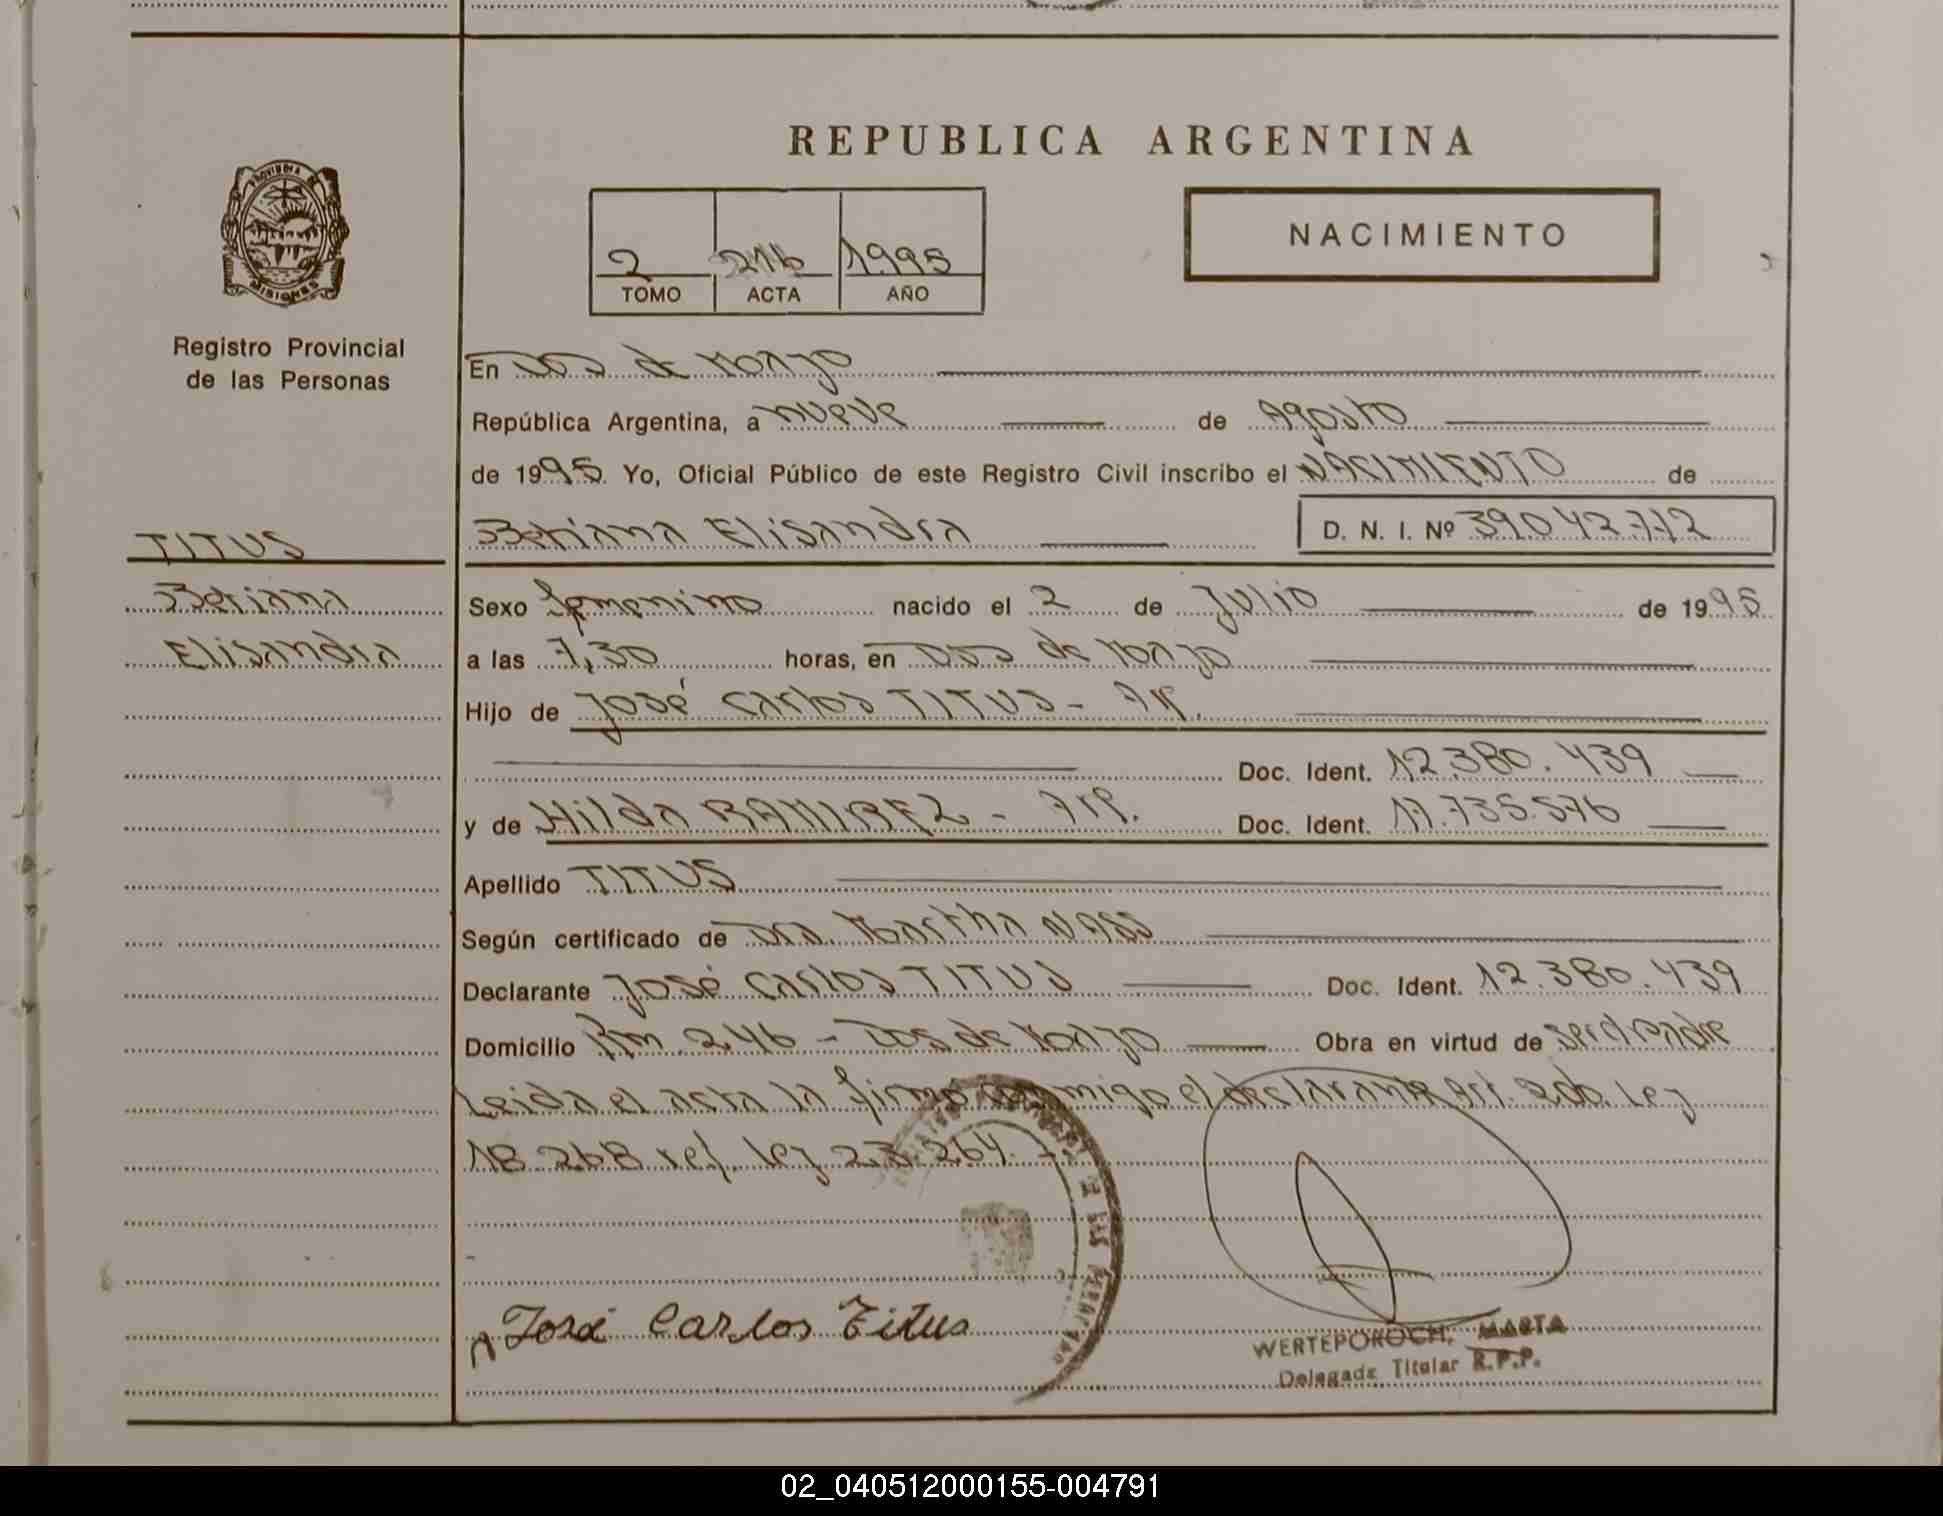 REPUBLICA ARGENTINA
PROVINCIA DE
MISIONES
Registro Provincial
de las Personas
2 216 1995
TOMO ACTA AÑO
NACIMIENTO
En Dos de Mayo
República Argentina, a nueve de Agosto
de 1995. Yo, Oficial Público de este Registro Civil inscribo el NACIMIENTO de
Betiana Elisandra D. N. I. Nº 39.042.772
TITUS
Betiana
Elisandra
Sexo femenino nacido el 2 de Julio de 1995
a las 7,30 horas, en Dos de Mayo
Hijo de José Carlos TITUS - Arg.
Doc. Ident. 12.380.439
y de Hilda RAMIREZ - Arg. Doc. Ident. 17.735.576
Apellido TITUS
Según certificado de Dra. Martha NASS
Declarante José Carlos TITUS Doc. Ident. 12.380.439
Domicilio Km 246 - Dos de Mayo Obra en virtud de ser el Padre
Leida el acta la firma conmigo el declarante Art. 2do. Ley
18.268 ref. Ley 23.264.
DE LAS PERSONAS
José Carlos Titus
WERTEPOROCH, MARTA
Delegada Titular R.P.P.
02_040512000155-004791